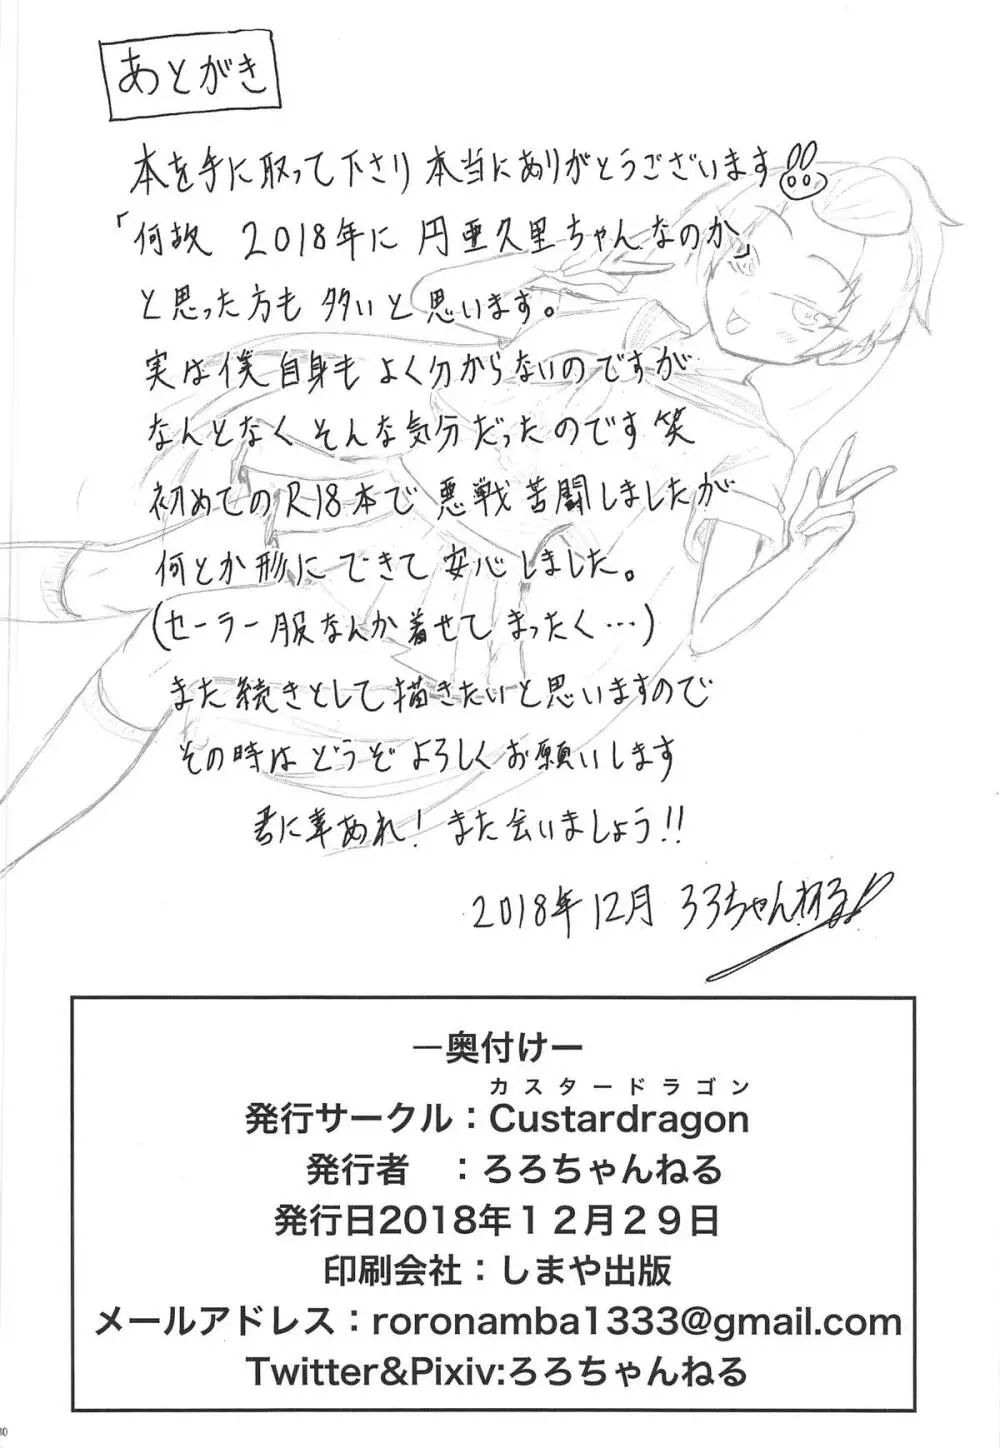 あとがき
本を手に取って下さり本当にありがとうございます
「何故 2018年に 円亜久里ちゃんなのか」
と思った方も多いと思います。
実は僕自身もよく分からないのですが
なんとなくそんな気分だったのです笑
初めてのR18本で悪戦苦闘しましたが
何とか形にできて安心しました。
(セーラー服なんか着せてまったく…)
また続きとして描きたいと思いますので
その時はどうぞよろしくお願いします
君に幸あれ!また会いましょう!!
2018年12月 ろろちゃんねる
ー奥付けー
カスタードラゴン
発行サークル：Custardragon
発行者　：ろろちゃんねる
発行日2018年１２月２９日
印刷会社：しまや出版
メールアドレス：roronamba1333@gmail.com
Twitter&Pixiv:ろろちゃんねる